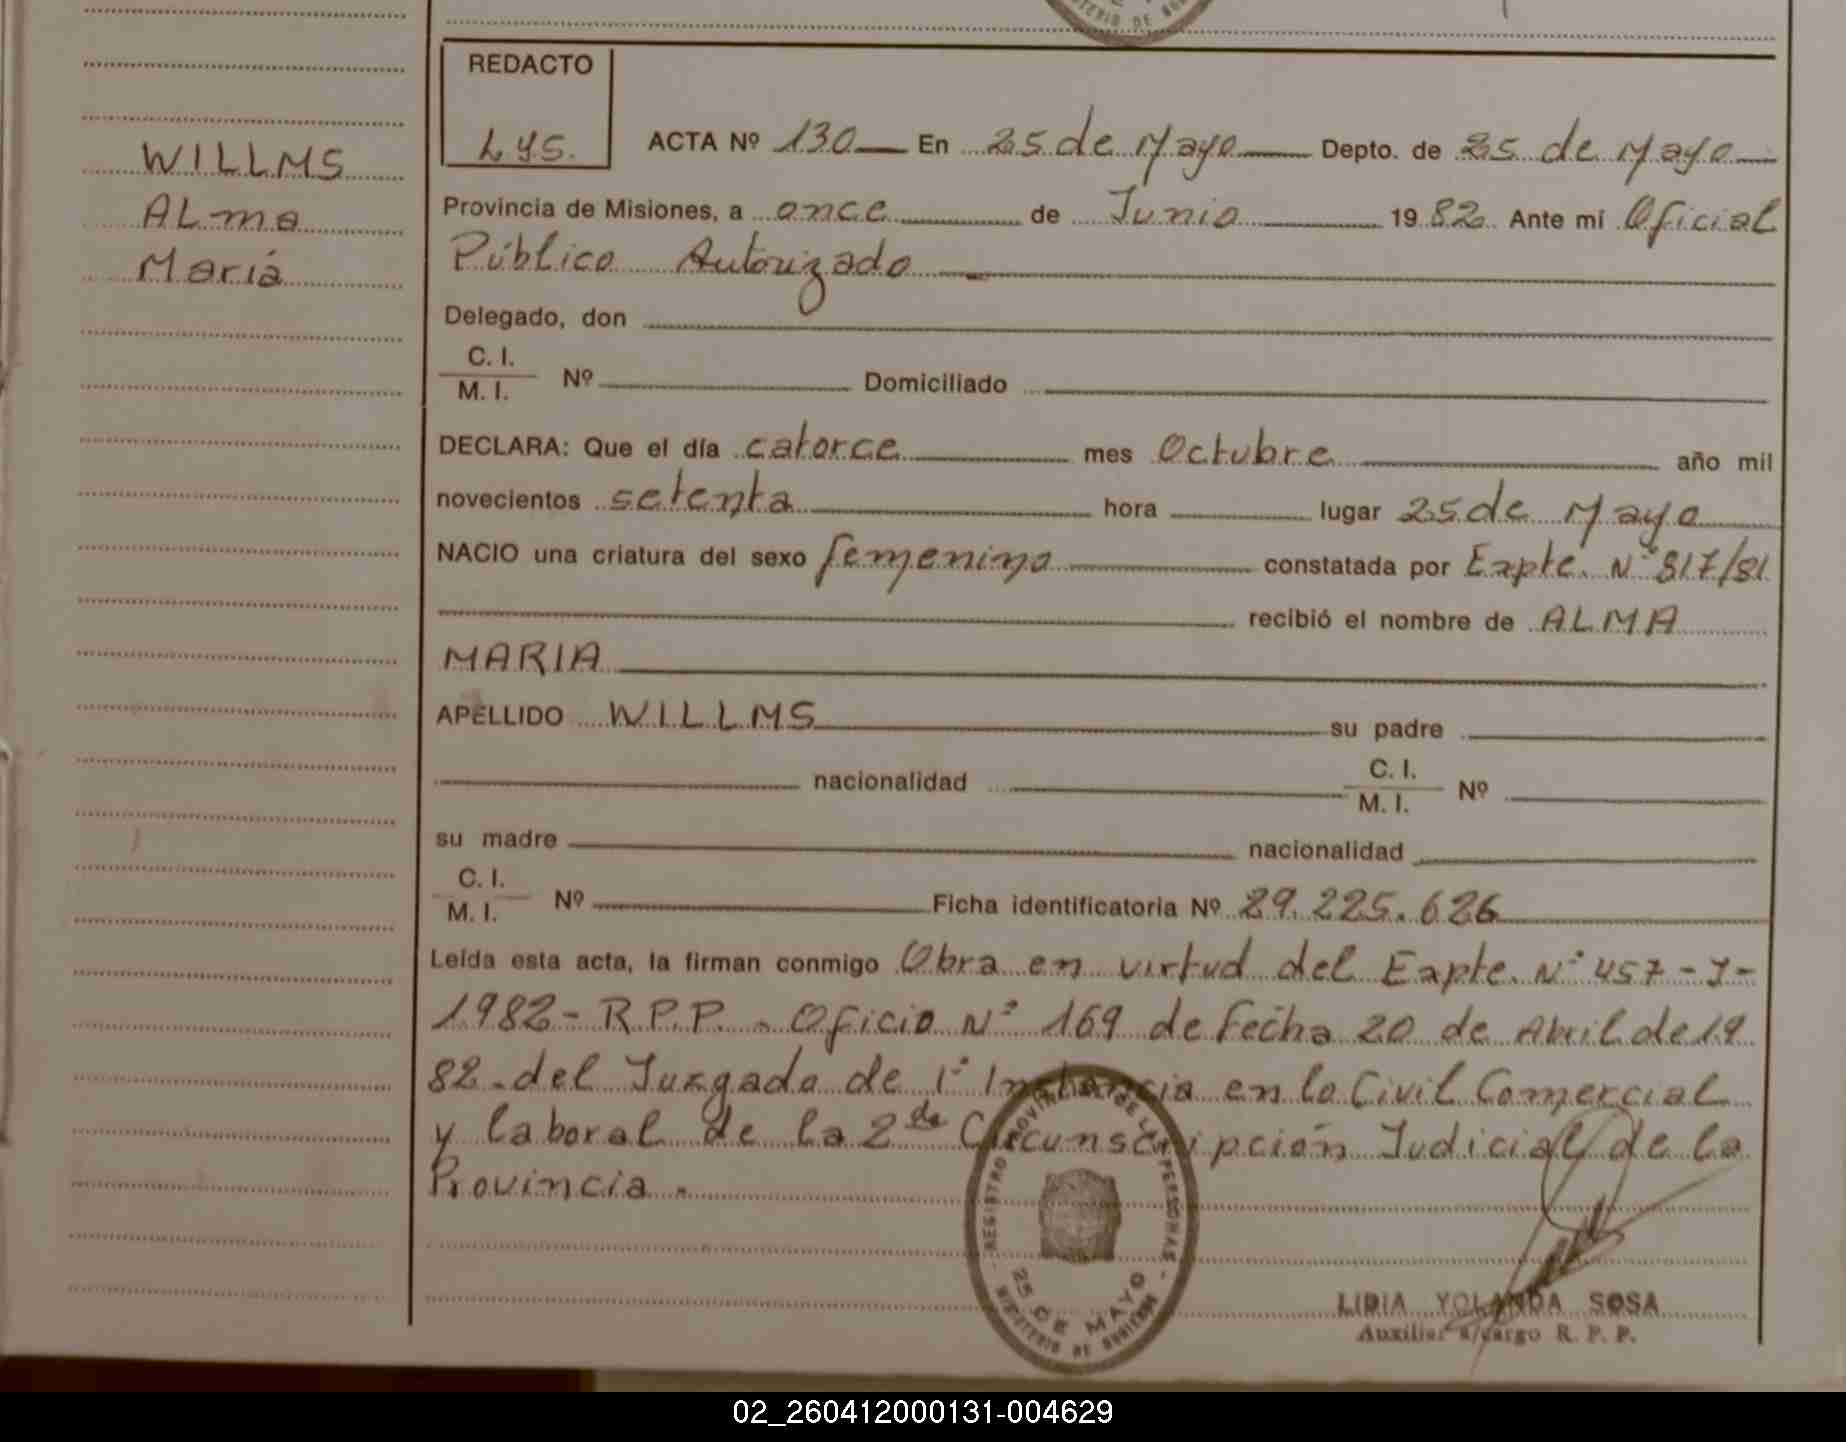 MINISTERIO DE GOBIERNO
REDACTO
L y S.
WILLMS
ALma
María
ACTA Nº 130 En 25 de Mayo Depto. de 25 de Mayo
Provincia de Misiones, a once de Junio 1982 Ante mí Oficial
Público Autorizado
Delegado, don
C. I.
M. I. Nº Domiciliado
DECLARA: Que el día catorce mes Octubre año mil
novecientos setenta hora lugar 25 de Mayo
NACIO una criatura del sexo femenino constatada por Expte. Nº 817/81
recibió el nombre de ALMA
MARIA
APELLIDO WILLMS su padre
nacionalidad C. I.
M. I. Nº
su madre nacionalidad
C. I.
M. I. Nº Ficha identificatoria Nº 29.225.626
Leída esta acta, la firman conmigo Obra en virtud del Expte. Nº 457-J-
1982- R.P.P. - Oficio Nº 169 de Fecha 20 de Abril de 19
82 - del Juzgado de 1ª Instancia en lo Civil Comercial
y laboral de la 2da Circunscripción Judicial de la
Provincia.
REGISTRO PROVINCIAL DE LAS PERSONAS
25 DE MAYO
MINISTERIO DE GOBIERNO
LIDIA YOLANDA SOSA
Auxiliar a/cargo R. P. P.
02_260412000131-004629